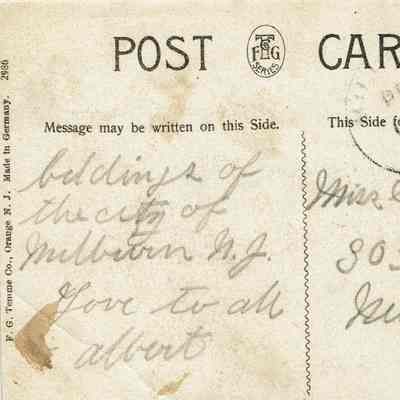 POST CAR
F T G
SERIES
Message may be written on this Side.
This Side fo
beldings of
the city of
Milburn N. J.
Love to all
albert
Miss
303
F. G. Temme Co., Orange N. J. Made in Germany. 2986